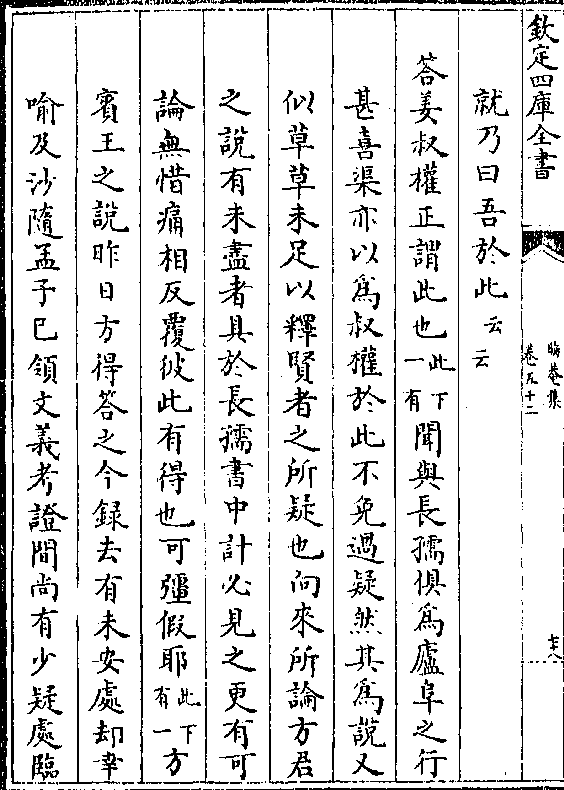 欽定四庫全書
晦菴集
卷五十二
就乃曰吾於此云云
答姜叔權正謂此也此下一有聞與長孺俱為廬阜之行
甚喜渠亦以為叔權於此不免過疑然其為說又
似草草未足以釋賢者之所疑也向來所論方君
之說有未盡者具於長孺書中計必見之更有可
論無惜痛相反覆彼此有得也可彊假耶此下一有方
賓王之說昨日方得答之今録去有未安處却幸
喻及沙隨孟子已領文義考證間尚有少疑處臨